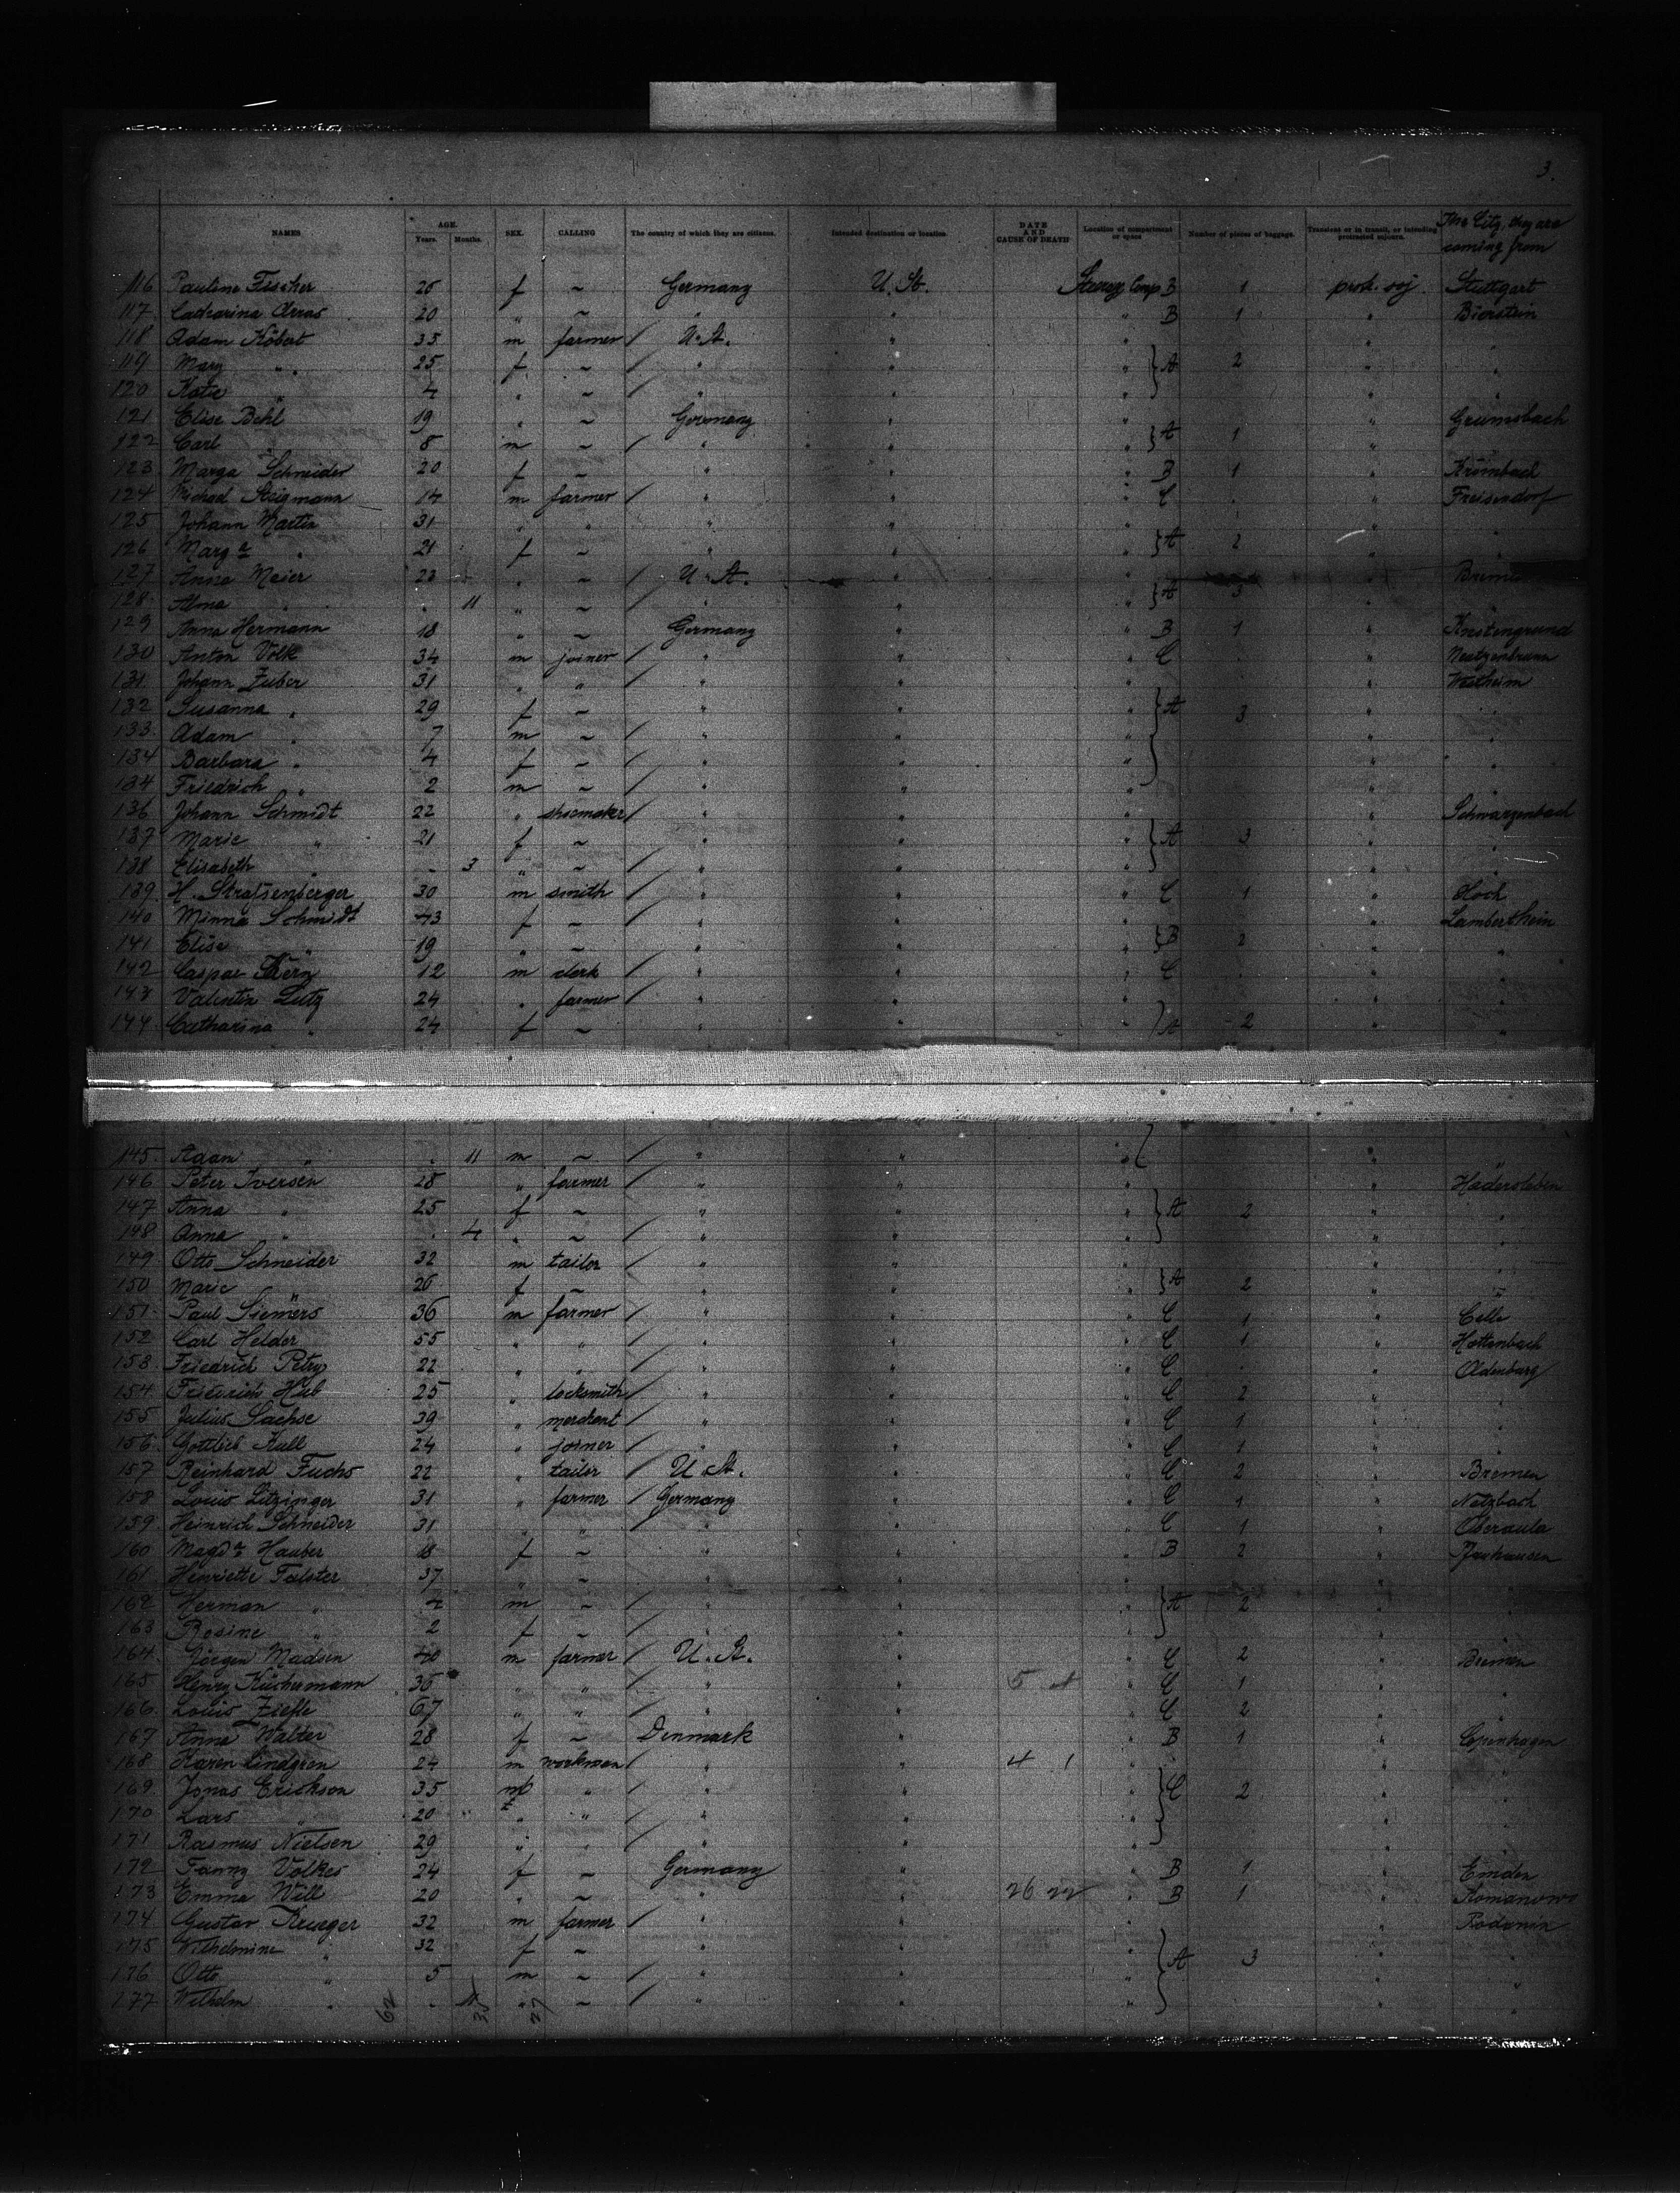 3.
NAMES AGE. Years. Months. SEX. CALLING The country of which they are citizens. Intended destination or location. DATE AND CAUSE OF DEATH Location of compartment or space Number of pieces of baggage. Transient or in transit, or intending protracted sojourn. The City, they are coming from
116 Pauline Fischer f ~ Germany U. St. Comp B 1 prot. soj. Stuttgart
117. Catharina Arras 20 " ~ " " " B 1 " Bierstein
118 Adam Köbat 35 m farmer / U. St. " " "
119 Mary " 25 f ~ " " " } A 2 " "
120 Katie " 4 " ~ / " " " " "
121 Elise Behl 19 " ~ Germany " " "
122 Carl 8 m ~ / " " " } A 1 "
123 Marga Schneider 20 f ~ " " " B 1 " Krömbach
124 Michael Stegmann 14 m farmer / " " " C " Freisendorf
125 Johann Martin 31 " " " " " " "
126 Marga " 21 f ~ " " " } A 2 " "
127 Anna Maier 23 " ~ / U. St. " "
128 Alma " 11 " ~ / " " " } A 3 "
129 Anna Hermann 18 " ~ Germany " " B 1 "
130 Anton Volk 34 m joiner / " " " C "
131 Johann Zuber 31 " " / " " " " Westheim
132 Susanna " 29 f ~ " " " } A 3 " "
133. Adam " 7 m ~ / " " " " "
134 Barbara " 4 f ~ / " " " " "
134 Friedrich " 2 m ~ / " " " " "
136 Johann Schmidt 22 " shoemaker / " " " " Schwarzenbach
137 Marie " 21 f ~ " " " } A 3 " "
138 Elisabeth " 3 " ~ / " " " " "
139. H. Strafsenberger 30 m smith / " " " C 1 " Hoch
140 Minna Schmidt 43 f ~ / " " " " Lamberthein
141 Elise " 19 " ~ " " " } B 2 " "
142 Caspar Kern 12 m clerk / " " " C " "
143 Valentin Lutz 24 " farmer / " " " " "
144. Catharina " 24 f ~ " " " } A 2 " "
145. Adam " 11 m ~ / " " " "
146 Peter Iversen 28 " farmer / " " " " Hadersleben
147 Anna " 25 f ~ / " " " } A 2 " "
148 Anna " 4 " ~ / " " " " "
149 Otto Schneider 32 m tailor / " " " " "
150 Marie 26 f ~ " " " } A 2 " "
151 Paul Siemers 36 m farmer / " " " C 1 " Celle
152 Carl Helder 55 " " / " " " C 1 " Hottenbach
153. Friedrich Petry 22 " " / " " " C " Oldenburg
154. Friedrich Hub 25 " locksmith / " " " C 2 " "
155 Julius Sachse 39 " merchant / " " " C 1 " "
156. Gottlieb Kull 24 " joiner / " " " C 1 " "
157 Reinhard Fuchs 22 " tailor / U. St. " " C 2 " Bremen
158 Louis Litzinger 31 " farmer / Germany " " C 1 " Netzbach
159. Heinrich Schneider 31 " " / " " " C 1 " Oberaula
160 Magda Hauber 18 f ~ " " " B 2 "
161 Henriette Falster 37 " ~ " " " "
162 Herman " 4 m ~ / " " " } A 2 " "
163 Rosine " 2 f ~ / " " " " "
164. Jörgen Madsen 40 m farmer / U. St. " " C 2 " Bremen
165 Henry Küchermann 36 " " / " " 5 " C 1 " "
166. Louis Ziefle 67 " " / " " " C 2 " "
167 Anna Walter 28 f ~ Denmark " " B 1 " Copenhagen
168 Karen Lindgren 24 m workman / " " 4 1 " " "
169. Jonas Erickson 35 m " / " " " } C 2 " "
170 Lars " 20 " " / " " " " "
171 Rasmus Nielsen 29 " " / " " " " "
172 Fanny Volkes 24 f ~ Germany " " B 1 " Emden
173 Emma Will 20 " ~ " " 26 22 " B 1 "
174 Gustav Krueger 32 m farmer / " " " " Rodonin
175 Wilhelmine " 32 f ~ " " " } A 3 " "
176 Otto " 5 m ~ / " " " " "
177 Wilhelm " " ~ / " " " " "
62 35 27